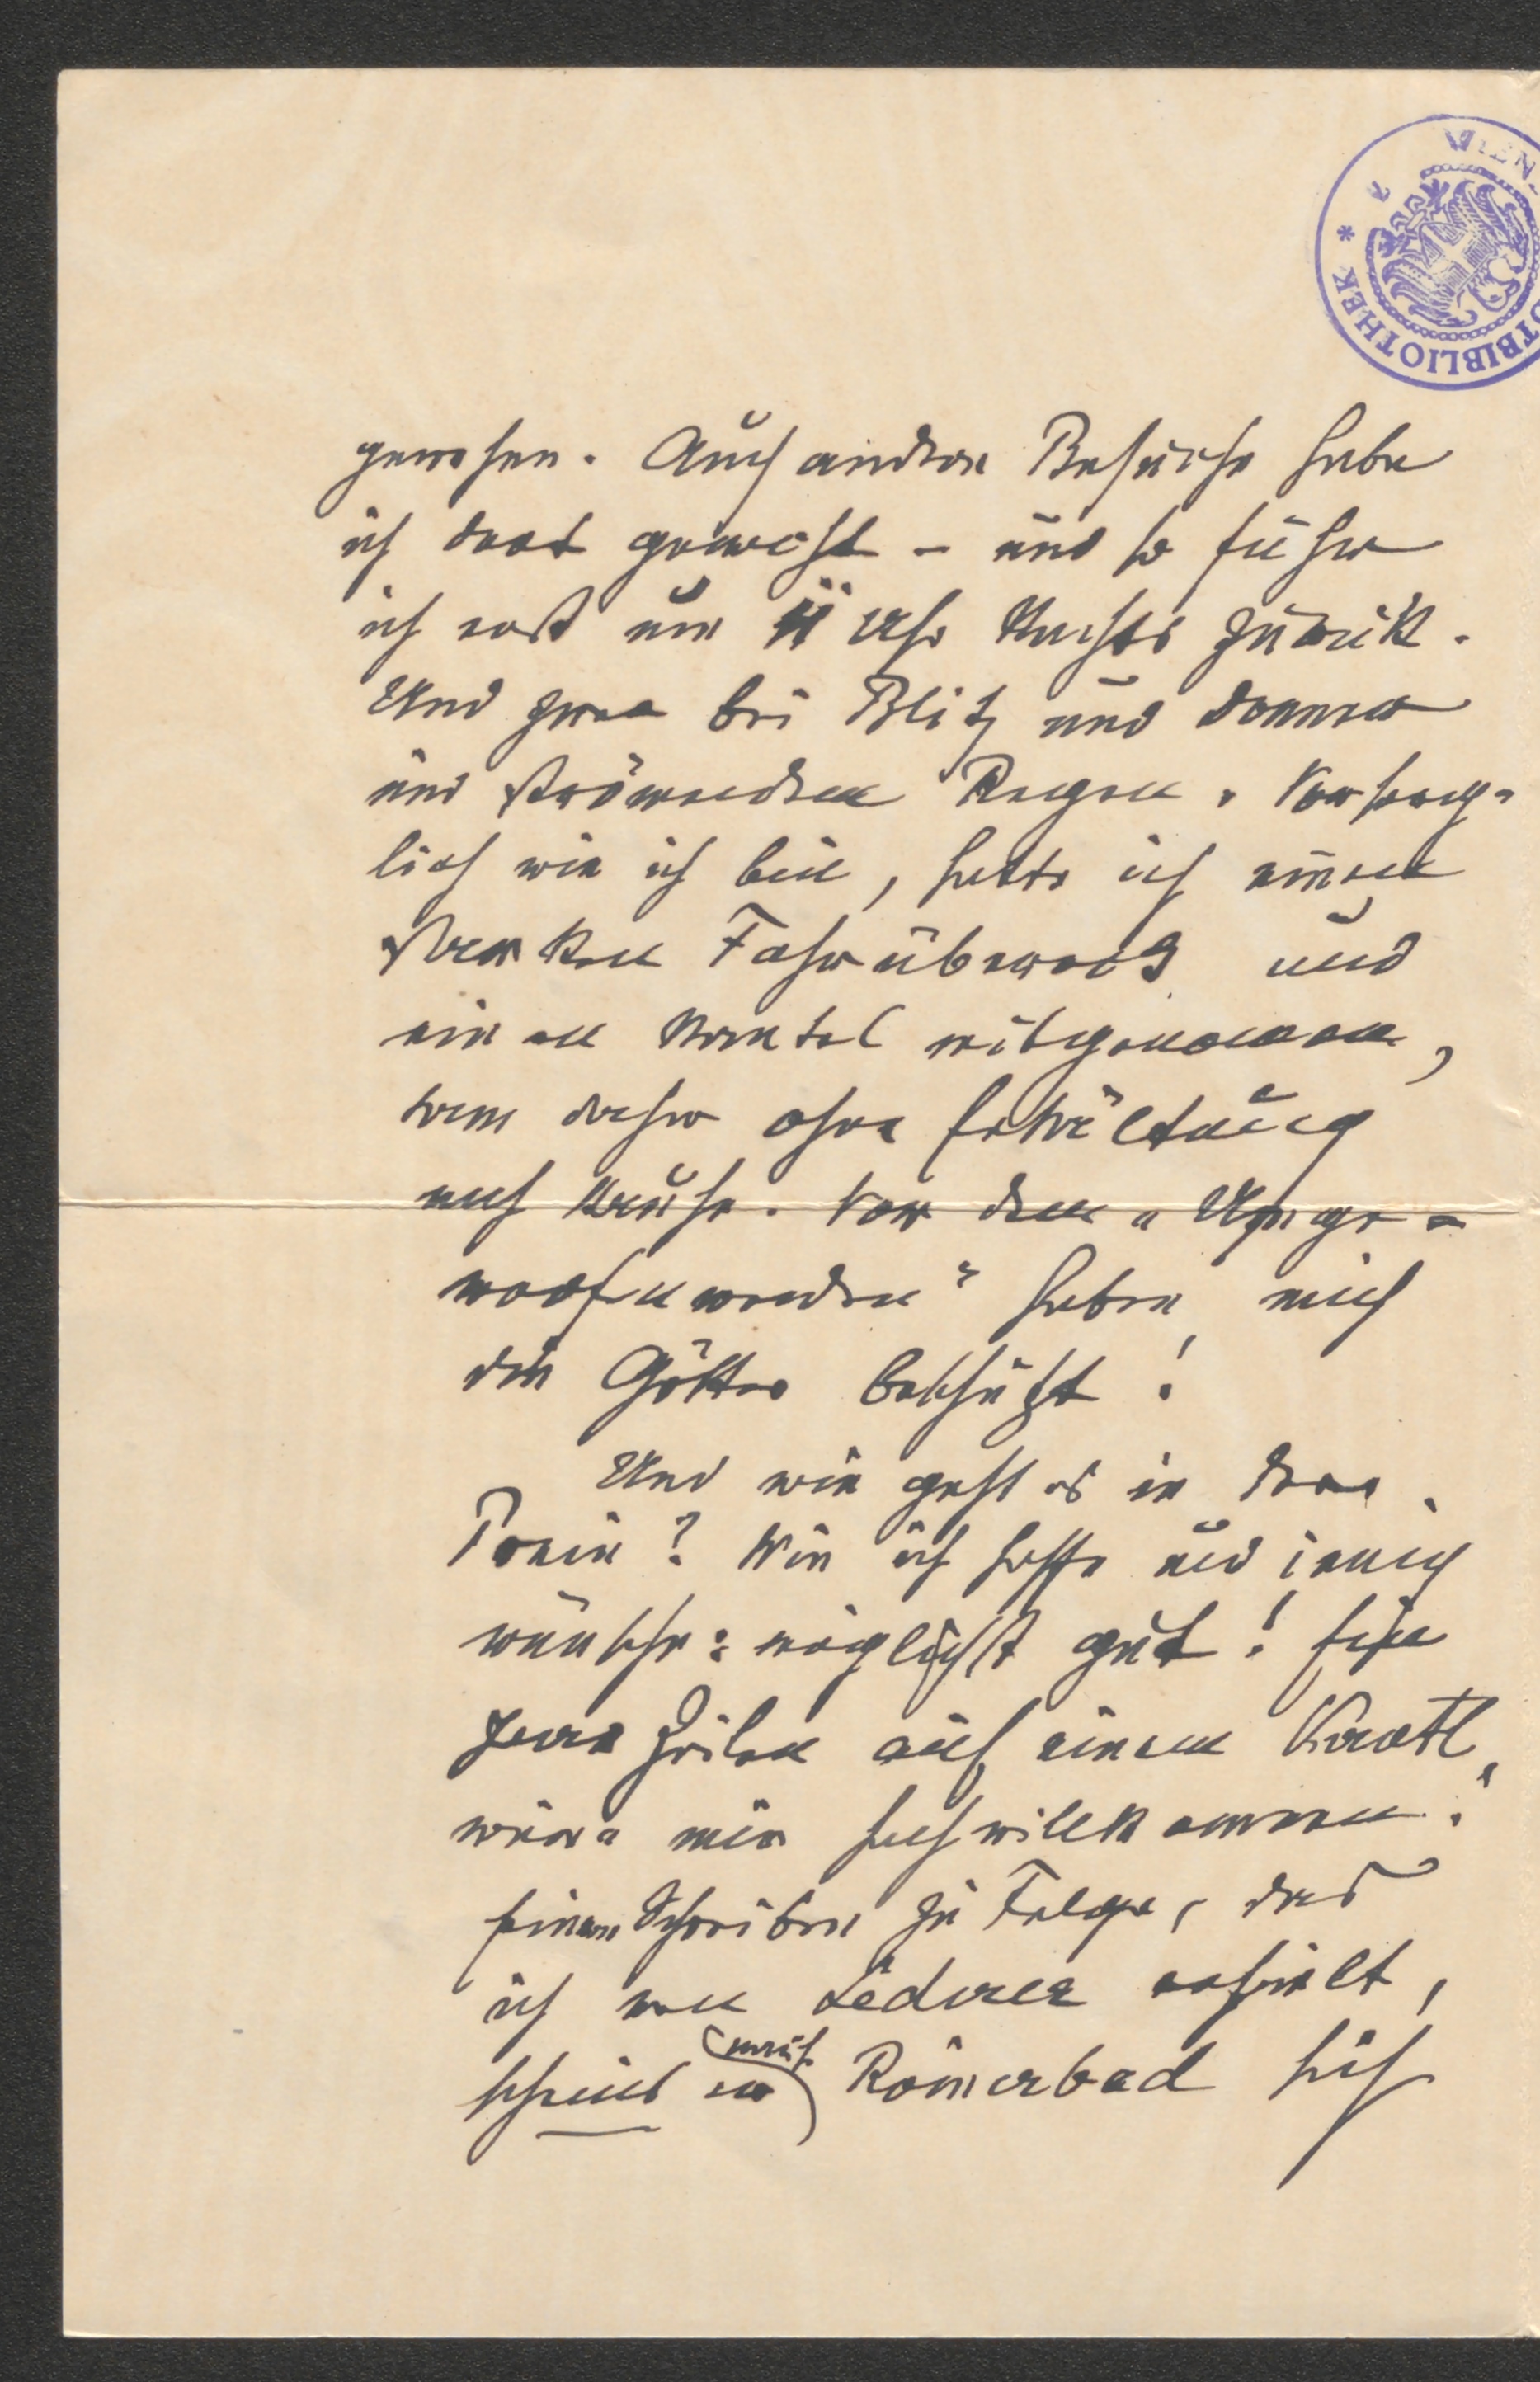 WIEN
TBIBLIOTHEK *
gewesen. Auch andere Besuche habe
ich dort gemacht – und so fuhr
ich erst um 11 Uhr Nachts zurück.
Und zwar bei Blitz und Donner
und strömenden Regen. Vorsorg-
lich wie ich bin, hatte ich einen
starken Überrock und
einen Mantel mitgenommen,
kam daher ohne Erkältung
nach Hause. Vor dem „Umge-
worfenwerden" haben mich
die Götter beschützt!
Und wie geht es in der
Ponie? Wie ich hoffe und innig
wünsche: möglichst gut! Ein
paar Zeilen auf einem Kartl
wären mir hochwillkommen.
Einem Schreiben zu Folge, das
ich von Lederer erhielt,
scheint es auch Römerbad sich